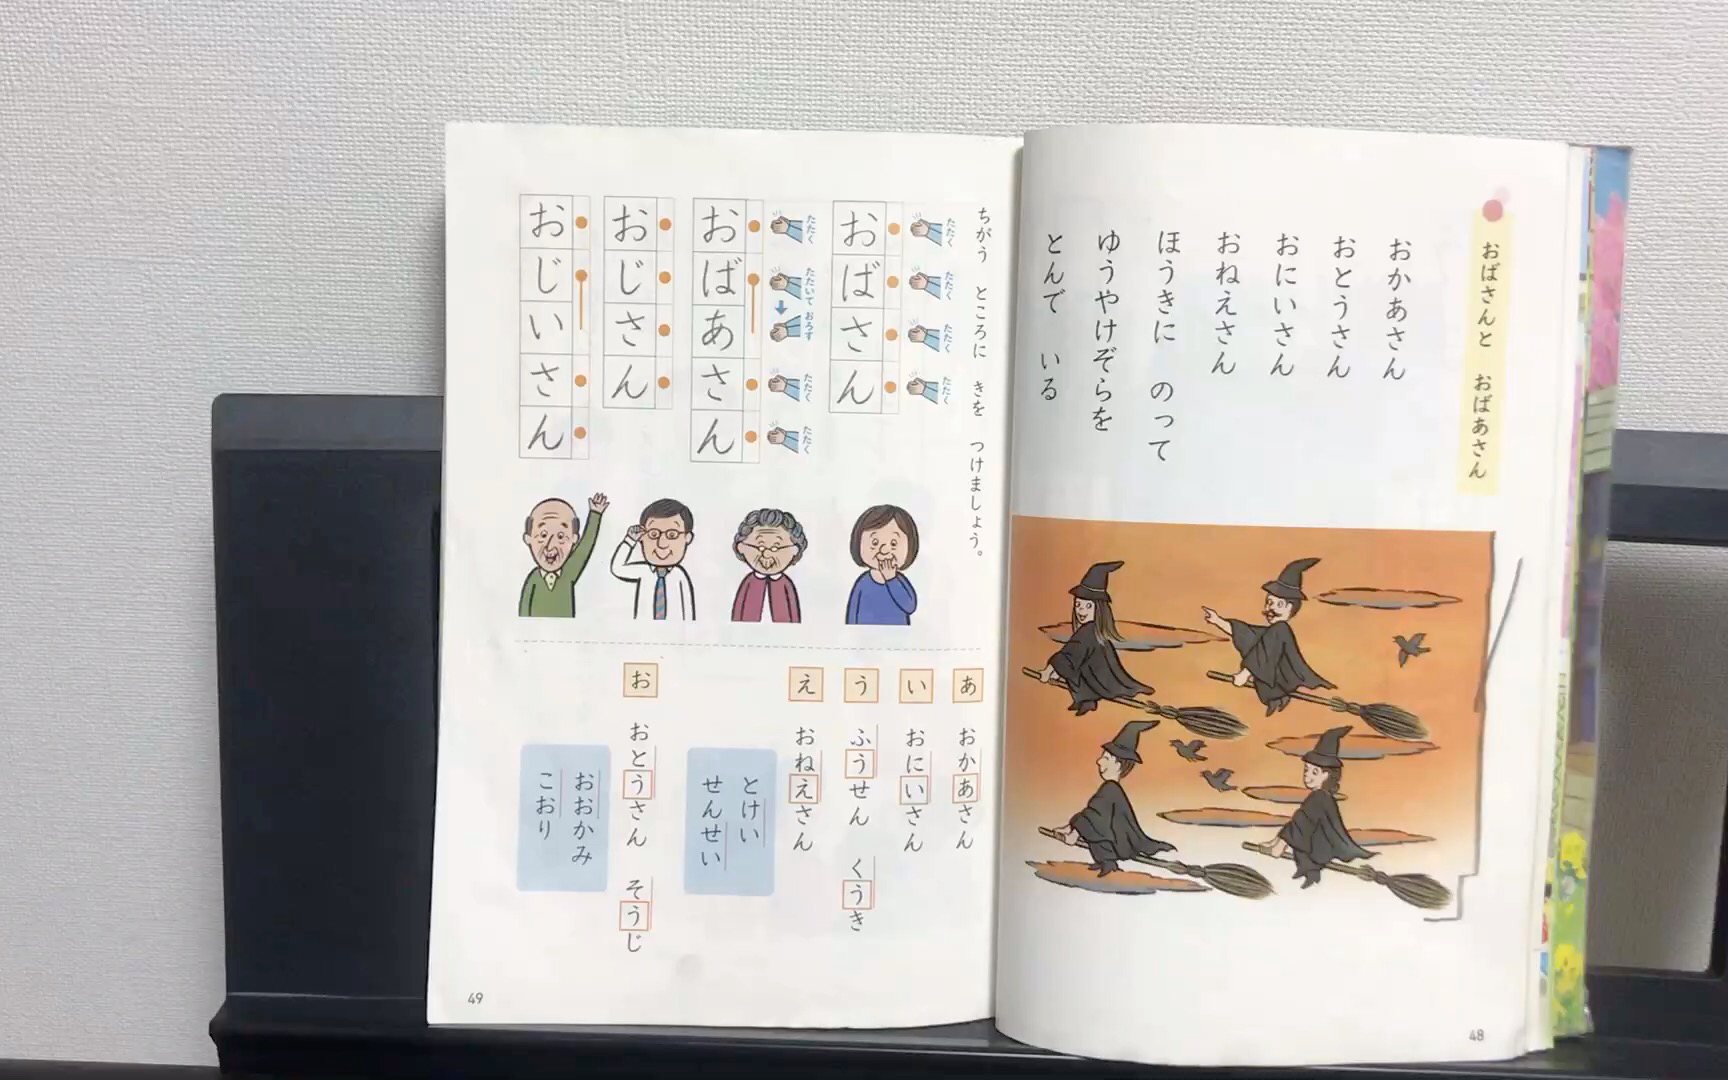 おばさんと　おばあさん
おかあさん
おとうさん
おにいさん
おねえさん
ほうきに　のって
ゆうやけぞらを
とんで　いる
48
ちがう　ところに　きを　つけましょう。
たたく
たたく
たたく
たたく
おばさん
たたく
たたいて　おろす
たたく
たたく
おばあさん
おじさん
おじいさん
あ
おかあさん
い
おにいさん
う
ふうせん　くうき
え
おねえさん
とけい
せんせい
お
おとうさん　そうじ
おおかみ
こおり
49